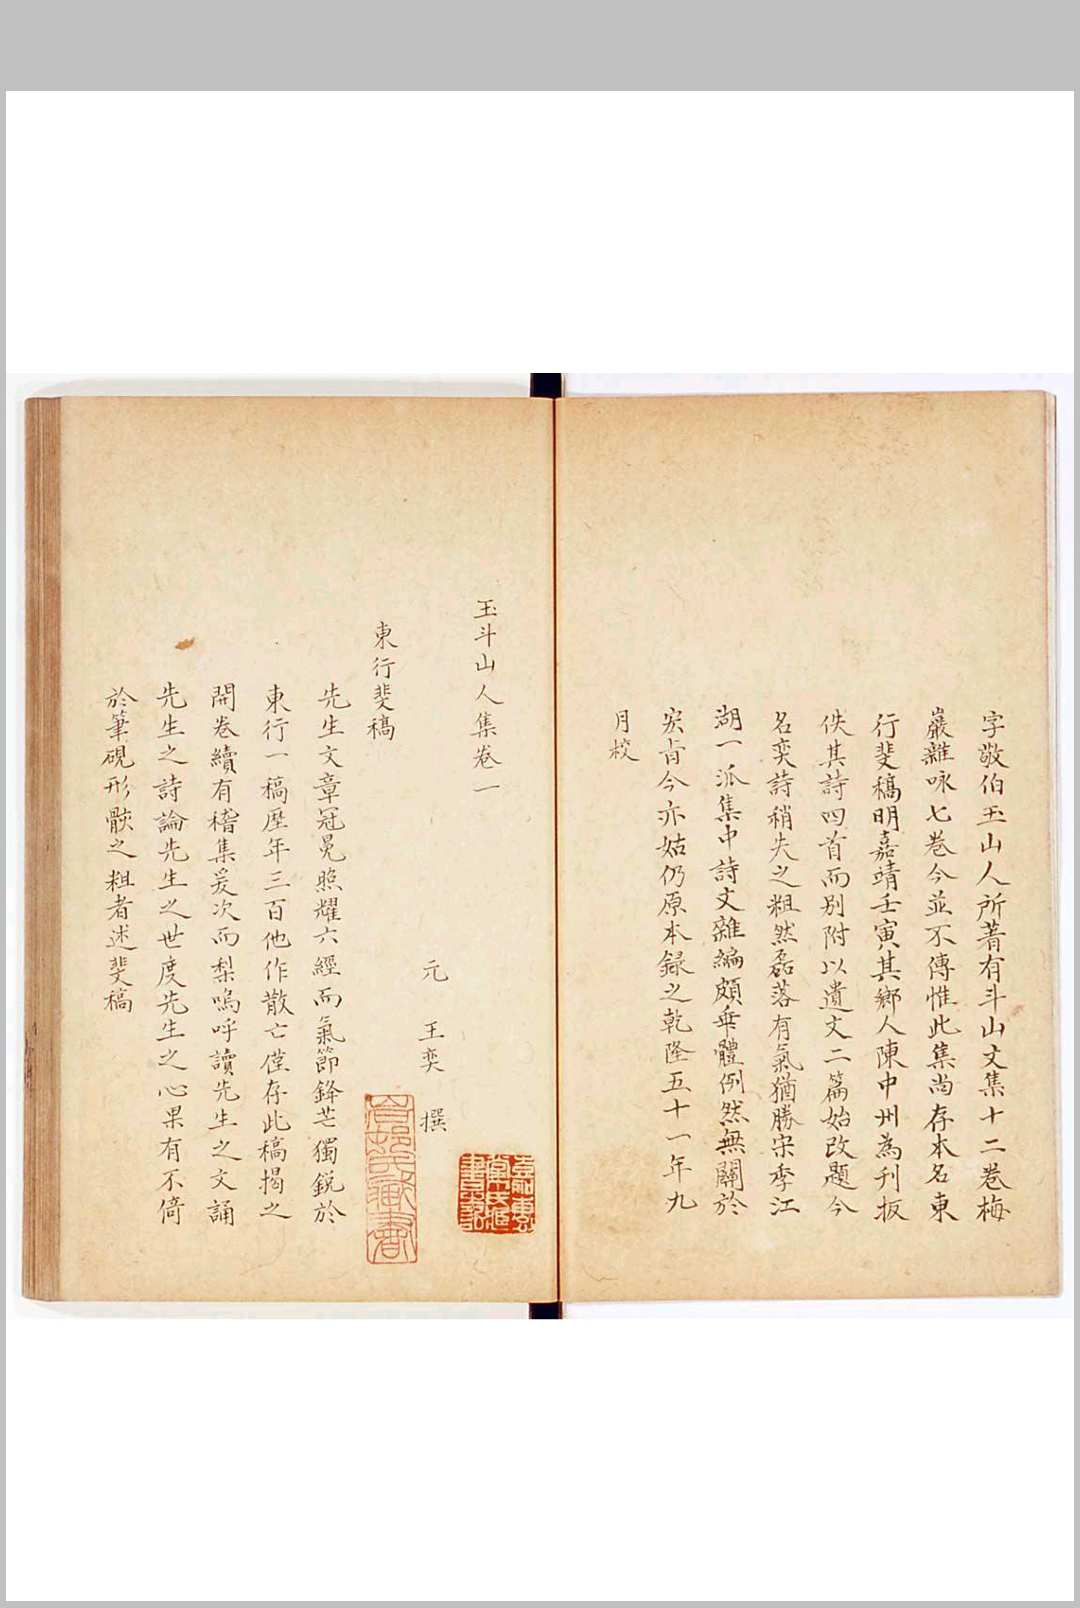 字敬伯玉山人所著有斗山文集十二卷梅
巖雜咏七卷今並不傳惟此集尚存本名東
行斐稿明嘉靖壬寅其鄉人陳中州為刋板
佚其詩四首而别附以遺文二篇始改題今
名奕詩稍失之粗然磊落有氣猶勝宋季江
湖一派集中詩文雜編頗乖體例然無關於
宏㫖今亦姑仍原本録之乾隆五十一年九
月校
玉斗山人集卷一
元 王奕 撰
東行斐稿
先生文章冠冕照耀六經而氣節鋒芒獨銳於
東行一稿歷年三百他作散亡僅存此稿揭之
開卷續有稽集爰次而梨嗚呼讀先生之文誦
先生之詩論先生之世度先生之心果有不倚
於筆硯形骸之粗者述斐稿